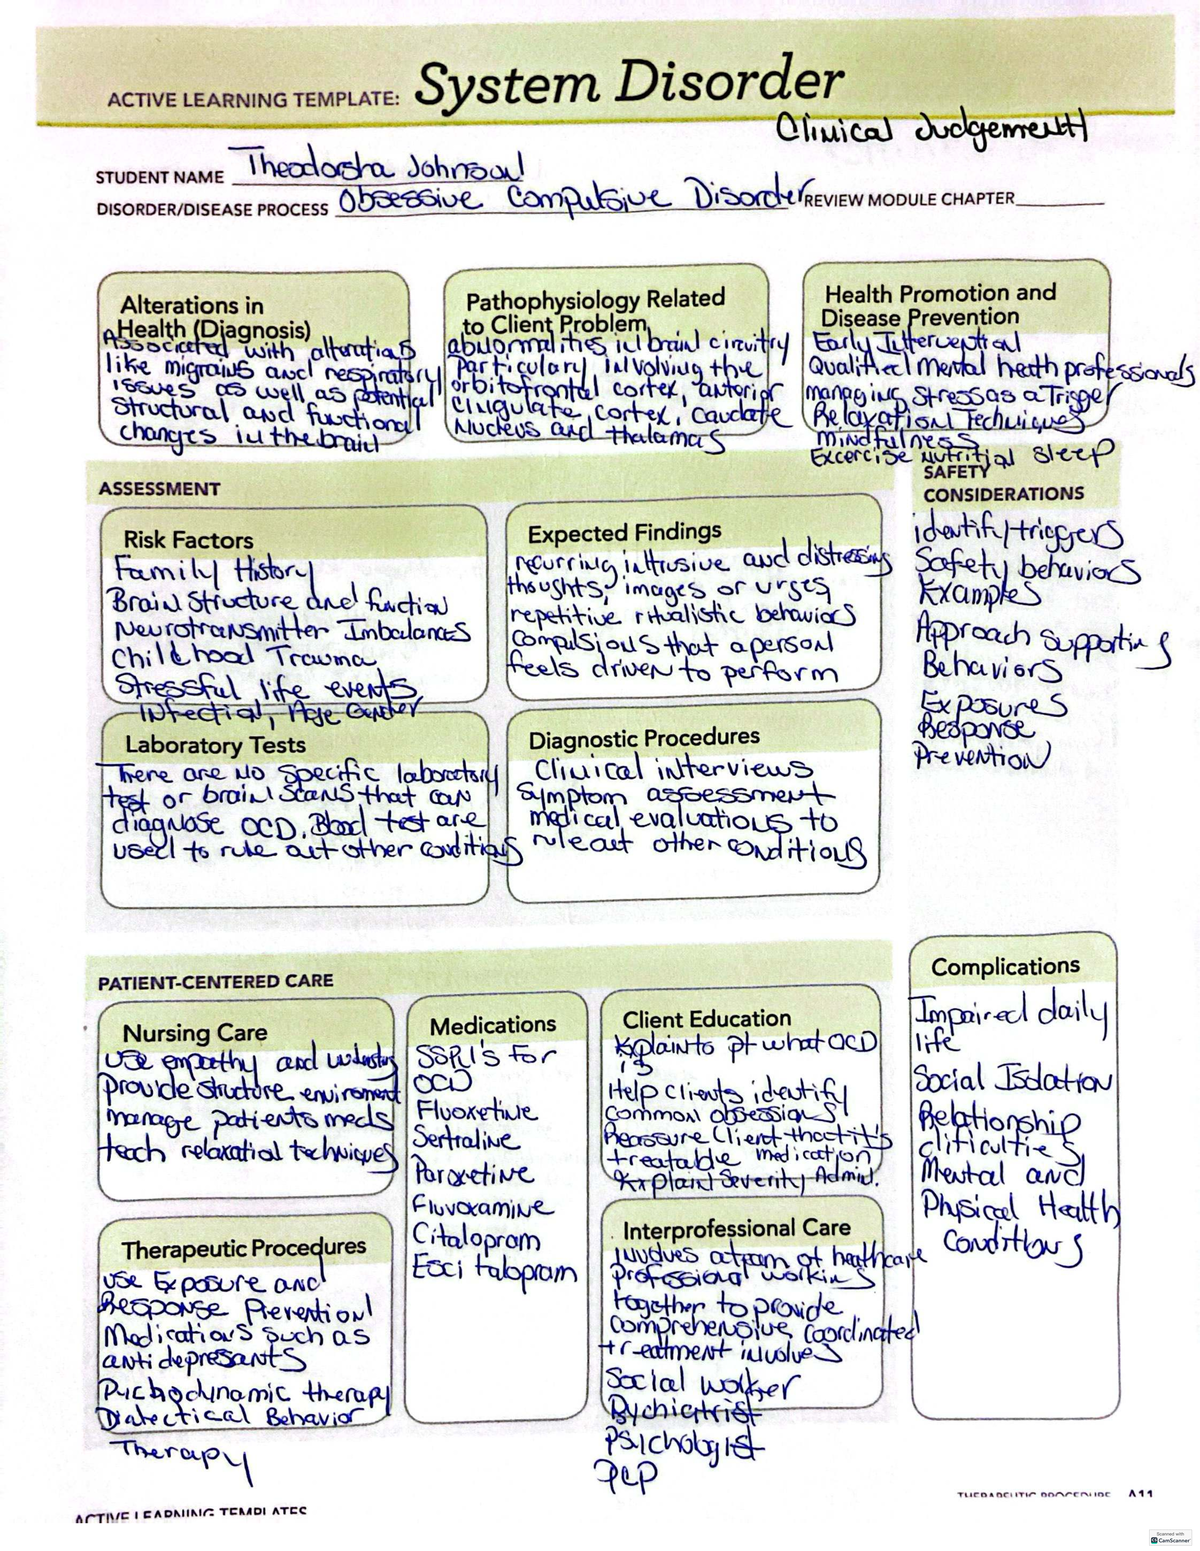 ACTIVE LEARNING TEMPLATE: System Disorder
Clinical Judgement
STUDENT NAME Theodorsha Johnson
DISORDER/DISEASE PROCESS Obsessive Compulsive Disorder REVIEW MODULE CHAPTER
Alterations in
Health (Diagnosis)
Associated with alterations
like migrains and respiratory
issues as well as potential
Structural and functional
changes in the brain
Pathophysiology Related
to Client Problem
abnormalities in brain circuitry
Particulary involving the
orbitofrontal cortex, anterior
cingulate cortex, caudate
Nucleus and thalamas
Health Promotion and
Disease Prevention
Early Intervention
Qualified mental heath professionals
managing Stress as a Trigger
Relaxation Techniques
mindfulness
Excercise Nutrition sleep
ASSESSMENT
Risk Factors
Family History
Brain Structure and function
Neurotransmitter Imbalances
Childhood Trauma
Stressful life events
Infection, Age Gender
Expected Findings
recurring intrusive and distressing
thoughts, images or urges
repetitive ritualistic behaviors
compulsions that a person
feels driven to perform
SAFETY
CONSIDERATIONS
identify triggers
Safety behaviors
Examples
Approach supporting
Behaviors
Exposures
Response
Prevention
Laboratory Tests
There are no specific laboratory
test or brain scans that can
diagnose OCD. Blood test are
used to rule out other conditions
Diagnostic Procedures
Clinical interviews
Symptom assessment
medical evaluations to
rule out other conditions
PATIENT-CENTERED CARE
Nursing Care
use empathy and
provide structure enviroment
manage patients meds
teach relaxation techniques
Medications
SSRI's for
OCD
Fluoxetine
Sertraline
Paroxetine
Fluvoxamine
Citalopram
Escitalopram
Client Education
Explain to pt what OCD
is
Help clients identify
common obsessions
Reassure Client that it's
treatable medication
Explain Severity Admin.
Complications
Impaired daily
life
Social Isolation
Relationship
dificulties
Mental and
Physical Health
Conditions
Therapeutic Procedures
use Exposure and
Response Prevention
Medications such as
antidepresants
Pichodynamic therapy
Dialectical Behavior
Therapy
Interprofessional Care
Involves a team of healthcare
professional working
together to provide
comprehensive coordinated
treatment involves
Social worker
Pychiatrist
Psichologist
PCP
ACTIVE LEARNING TEMPLATES
THERAPEUTIC PROCEDURE A11
Scanned with
CamScanner